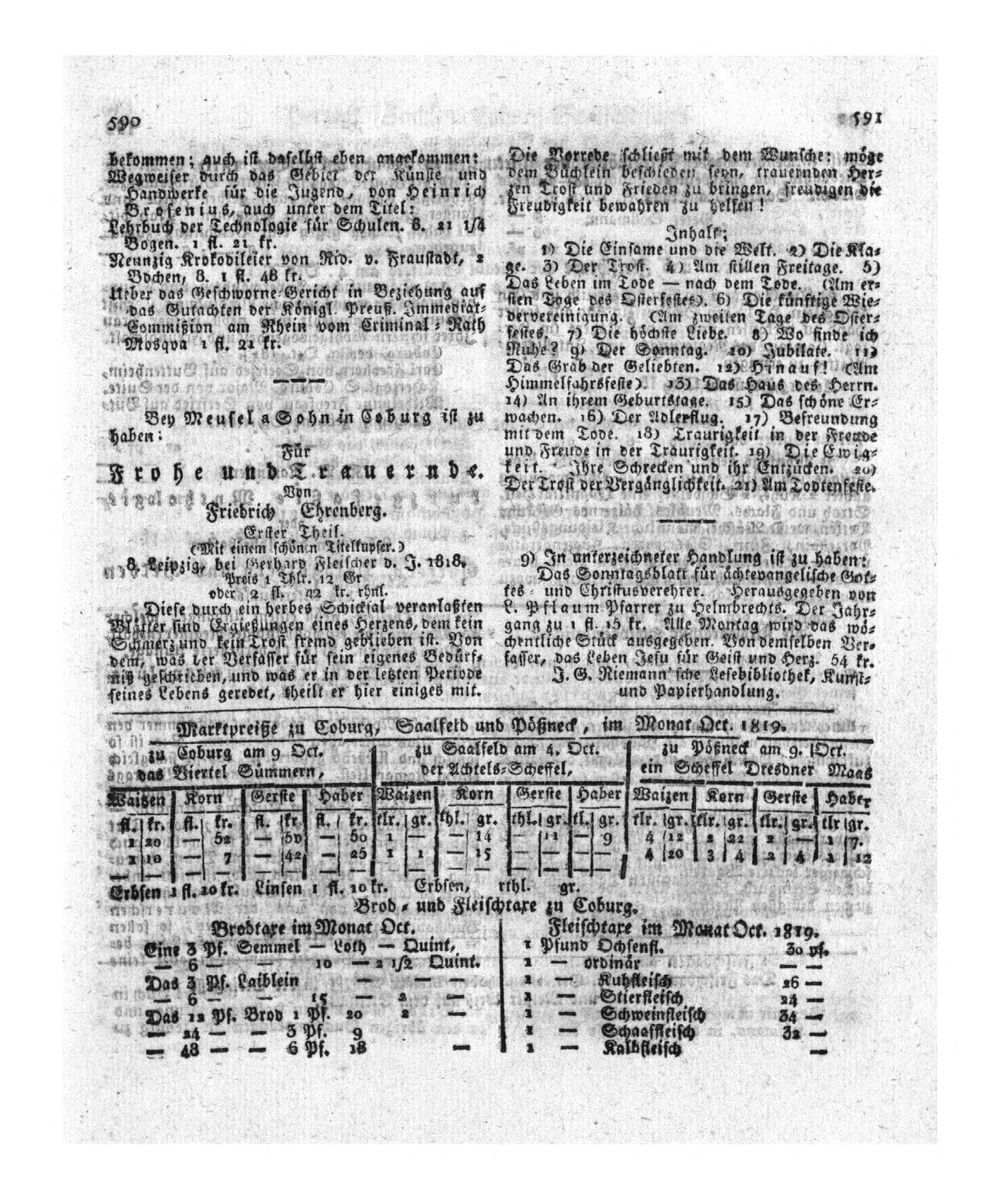 590
bekommen; auch ist daselbst eben angekommen:
Wegweiser durch das Gebiet der Künste und
Handwerke für die Jugend, von Heinrich
Brosenius, auch unter dem Titel:
Lehrbuch der Technologie für Schulen. 8. 21 1/4
Bogen. 1 fl. 21 kr.
Neunzig Krokodileier von Riv. v. Fraustadt, 2
Bdchen, 8. 1 fl. 48 kr.
Ueber das Geschworne-Gericht in Beziehung auf
das Gutachten der Königl. Preuß. Immediat-
Commißion am Rhein vom Criminal-Rath
Mosqva 1 fl. 21 kr.
Bey Meusel a Sohn in Coburg ist zu
haben:
Für
Frohe und Trauernde.
Von
Friedrich Ehrenberg.
Erster Theil.
(Mit einem schönen Titelkupfer.)
8. Leipzig, bei Gerhard Fleischer d. J. 1818.
Preis 1 Thlr. 12 Gr
oder 2 fl. 42 kr. rhnl.
Diese durch ein herbes Schicksal veranlaßten
Blätter sind Ergießungen eines Herzens, dem kein
Schmerz und kein Trost fremd geblieben ist. Von
dem, was der Verfasser für sein eigenes Bedürf-
niß geschrieben, und was er in der letzten Periode
seines Lebens geredet, theilt er hier einiges mit.
591
Die Vorrede schließt mit dem Wunsche: möge
dem Büchlein beschieden seyn, trauernden Her-
zen Trost und Frieden zu bringen, freudigen die
Freudigkeit bewahren zu helfen!
Inhalt:
1) Die Einsame und die Welt. 2) Die Kla-
ge. 3) Der Trost. 4) Am stillen Freitage. 5)
Das Leben im Tode — nach dem Tode. (Am er-
sten Tage des Osterfestes). 6) Die künftige Wie-
dervereinigung. (Am zweiten Tage des Oster-
festes. 7) Die höchste Liebe. 8) Wo finde ich
Ruhe? 9) Der Sonntag. 10) Jubilate. 11)
Das Grab der Geliebten. 12) Hinauf! (Am
Himmelfahrsfeste). 13) Das Haus des Herrn.
14) An ihrem Geburtstage. 15) Das schöne Er-
wachen. 16) Der Adlerflug. 17) Befreundung
mit dem Tode. 18) Traurigkeit in der Freude
und Freude in der Traurigkeit. 19) Die Ewig-
keit. Ihre Schrecken und ihr Entzücken. 20)
Der Trost der Vergänglichkeit. 21) Am Todtenfeste.
9) In unterzeichneter Handlung ist zu haben:
Das Sonntagsblatt für ächtevangelische Got-
tes- und Christusverehrer. Herausgegeben von
L. Pflaum Pfarrer zu Helmbrechts. Der Jahr-
gang zu 1 fl. 15 kr. Alle Montag wird das wö-
chentliche Stück ausgegeben. Von demselben Ver-
fasser, das Leben Jesu für Geist und Herz. 54 kr.
J. G. Riemann'sche Lesebibliothek, Kunst-
und Papierhandlung.
Marktpreiße zu Coburg, Saalfeld und Pößneck, im Monat Oct. 1819.
zu Coburg am 9 Oct.
das Viertel Sümmern,
zu Saalfeld am 4. Oct.
der Achtels-Scheffel,
zu Pößneck am 9. Oct.
ein Scheffel Dresdner Maas
Waizen Korn Gerste Haber Waizen Korn Gerste Haber Waizen Korn Gerste Haber
fl. kr. fl. kr. fl. kr. fl. kr. tlr. gr. thl. gr. thl. gr. tl. gr. tlr. gr. tlr. gr. tlr. gr. tlr gr.
1 20 — 52 — 50 — 50 1 — — 14 — 11 — 9 4 12 2 22 2 — 1 7.
1 10 — 7 — 42 — 25 1 1 — 15 — — — — 4 20 3 4 2 4 1 12
Erbsen 1 fl. 20 kr. Linsen 1 fl. 10 kr. Erbsen, rthl. gr.
Brod- und Fleischtaxe zu Coburg.
Brodtaxe im Monat Oct.
Eine 3 Pf. Semmel — Loth — Quint,
— 6 — — 10 — 2 1/2 Quint.
Das 3 Pf. Laiblein — — —
— 6 — — 15 — 2 —
Das 12 Pf. Brod 1 Pf. 20 2 —
— 24 — — 3 Pf. 9
— 48 — — 6 Pf. 18 —
Fleischtaxe im Monat Oct. 1819.
1 Pfund Ochsenfl. 30 pf.
1 — ordinär — —
1 — Kuhfleisch 26 —
1 — Stierfleisch 24 —
1 — Schweinfleisch 34 —
1 — Schaaffleisch 32 —
1 — Kalbfleisch —